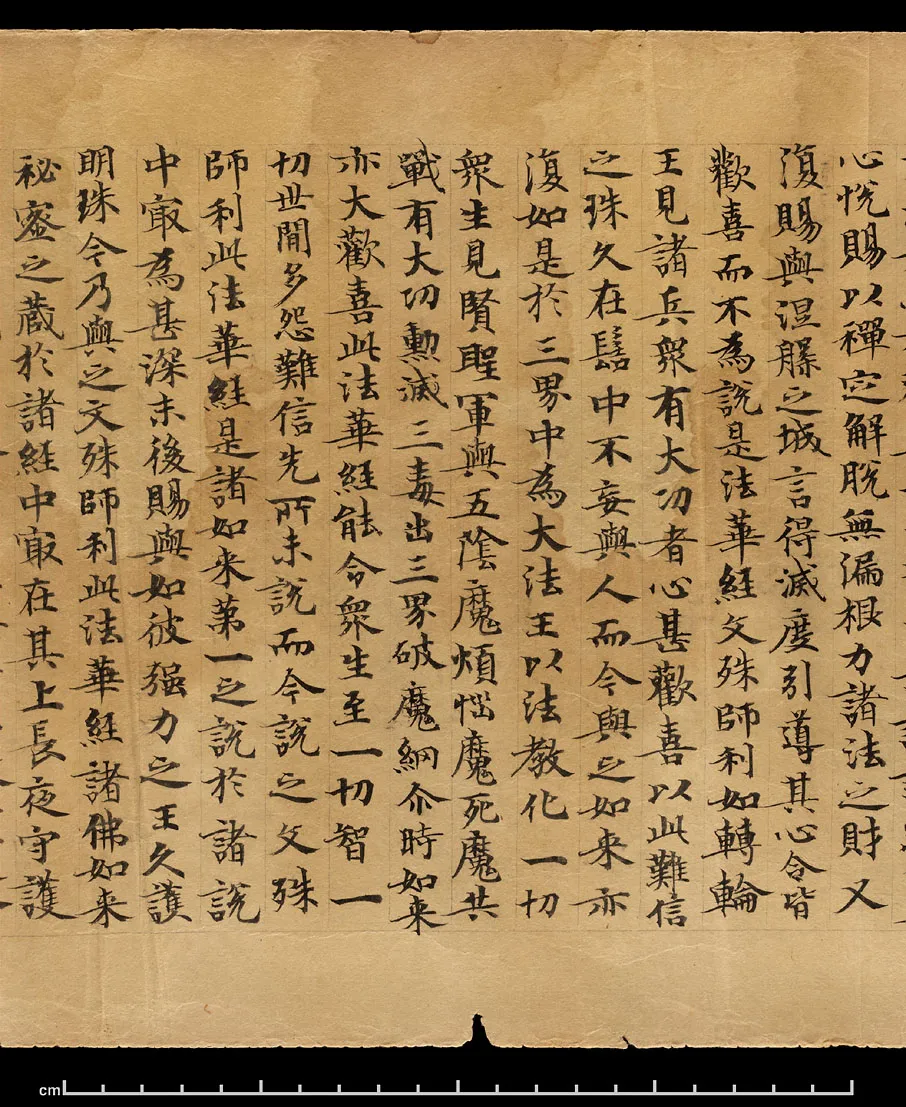 心悅賜以禪定解脫無漏根力諸法之財又
復賜與涅槃之城言得滅度引導其心令皆
歡喜而不為說是法華經文殊師利如轉輪
王見諸兵眾有大功者心甚歡喜以此難信
之珠久在髻中不妄與人而今與之如来亦
復如是於三界中為大法王以法教化一切
眾生見賢聖軍與五陰魔煩惱魔死魔共
戰有大功勳滅三毒出三界破魔網尒時如来
亦大歡喜此法華経能令眾生至一切智一
切世間多怨難信先所未說而今說之文殊
師利此法華経是諸如来苐一之說於諸說
中㝡為甚深末後賜與如彼强力之王久護
明珠今乃與之文殊師利此法華経諸佛如来
秘密之蔵於諸経中㝡在其上長夜守護
cm